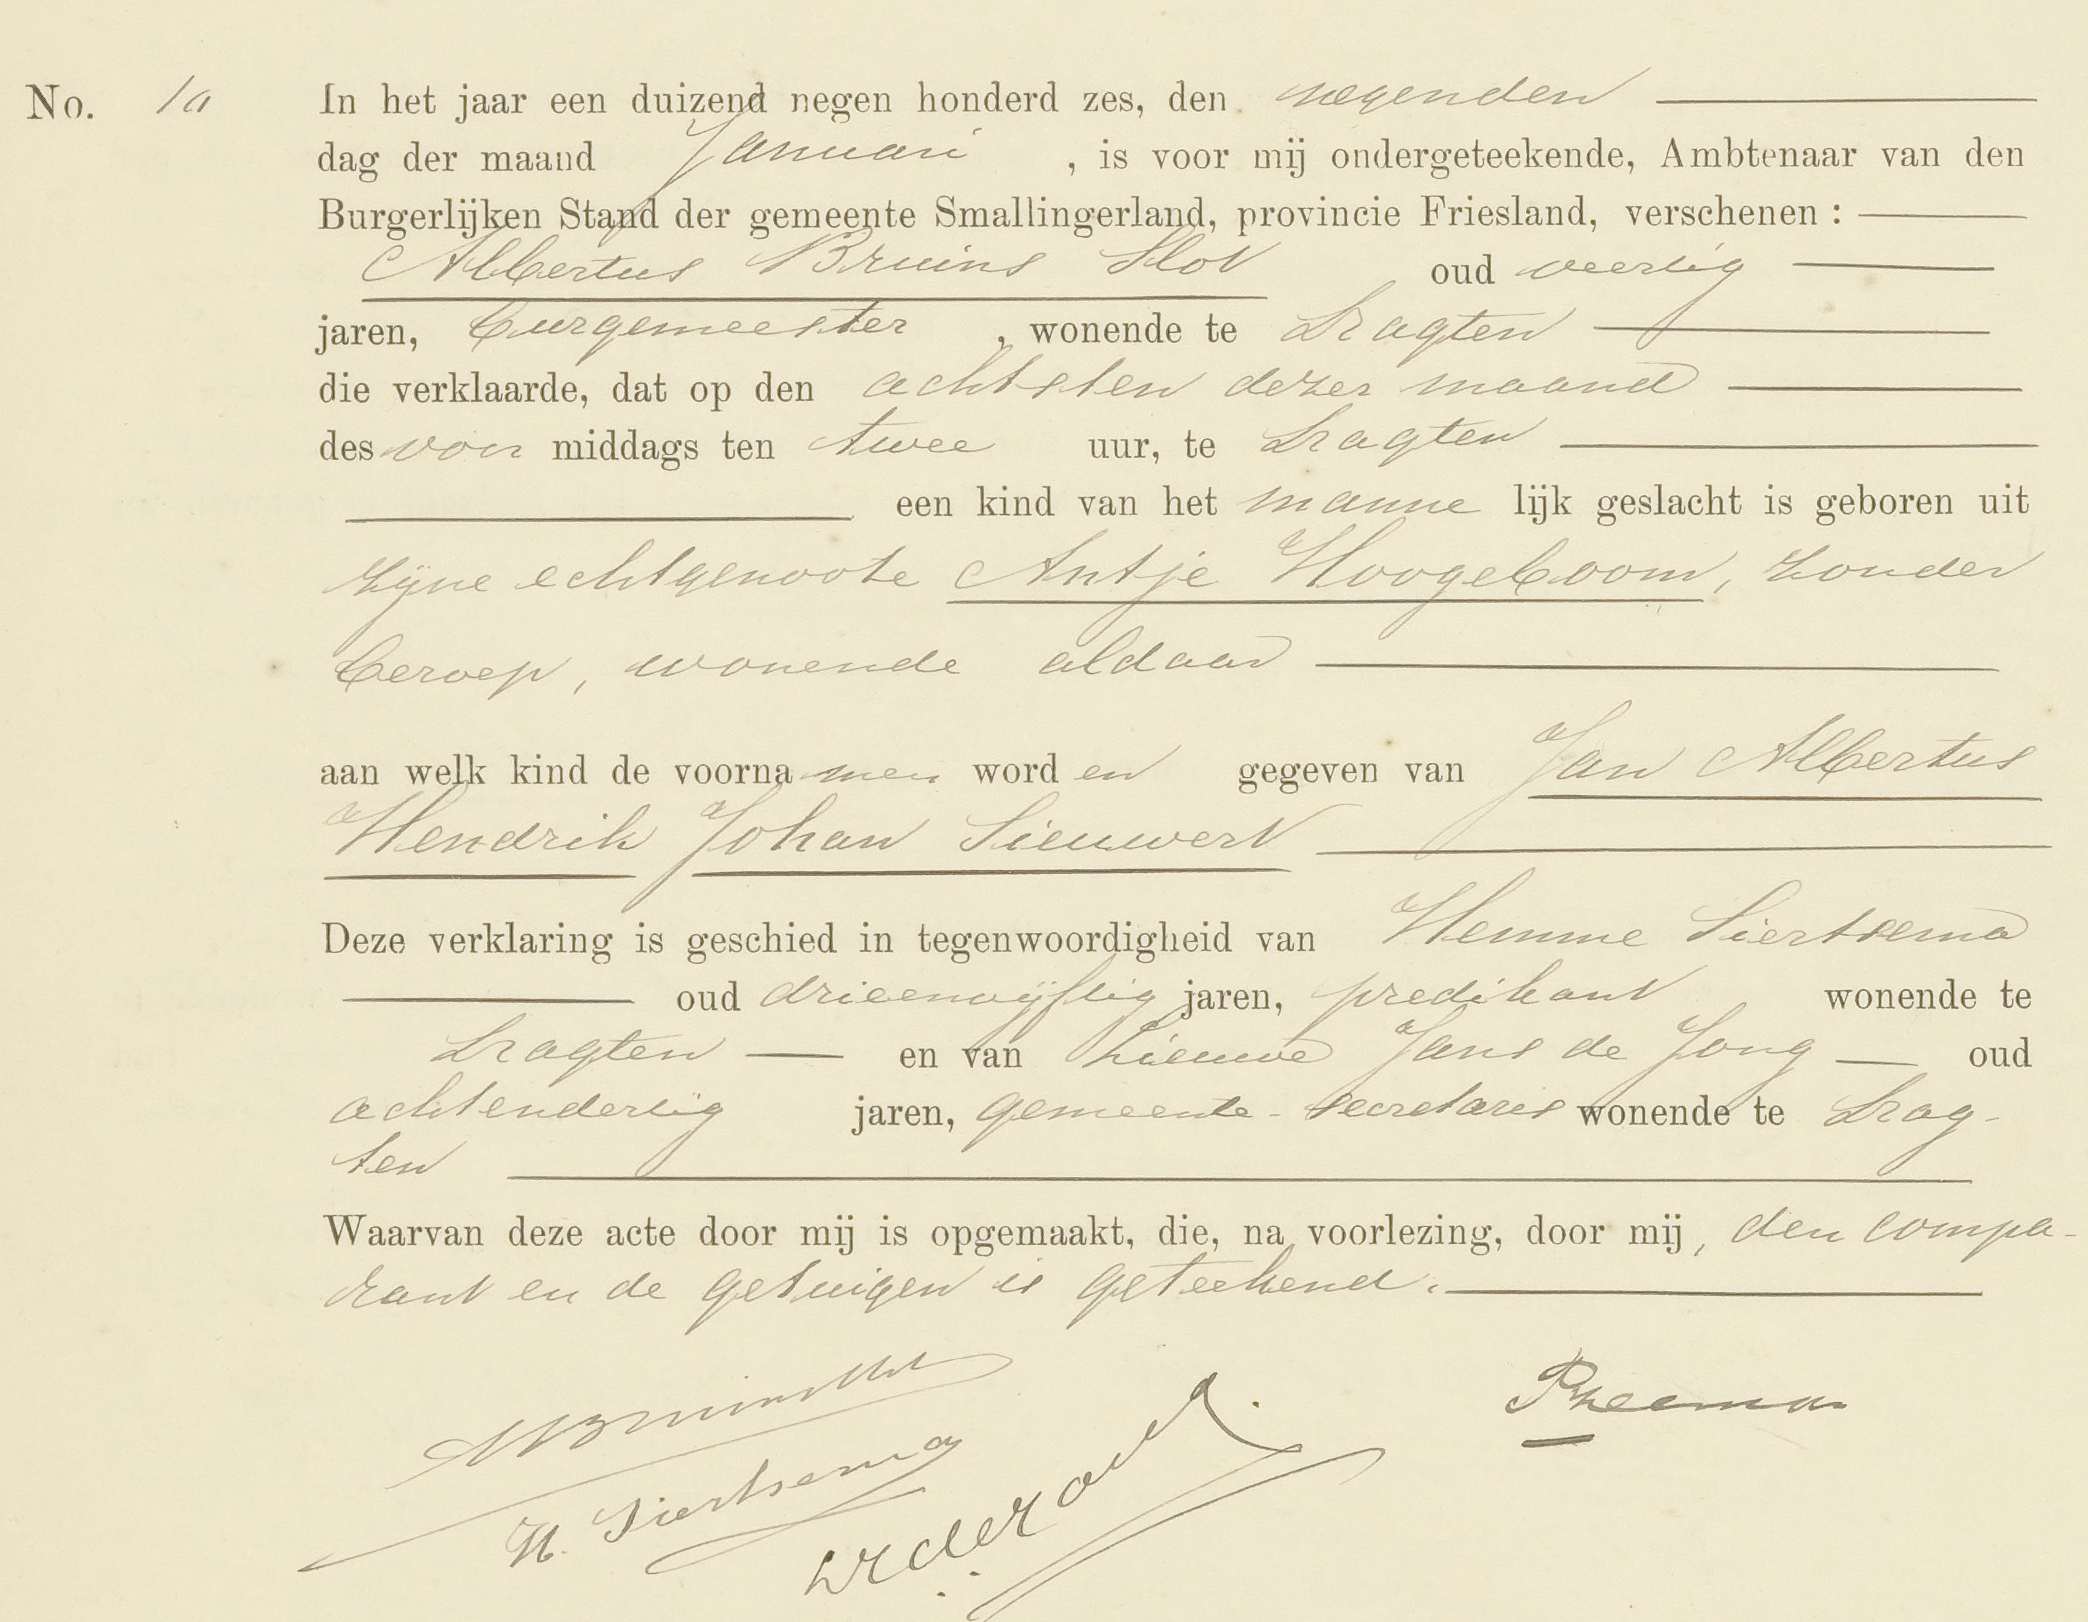 No. 10 In het jaar een duizend negen honderd zes, den negenden
dag der maand Januari, is voor mij ondergeteekende, Ambtenaar van den
Burgerlijken Stand der gemeente Smallingerland, provincie Friesland, verschenen:
Albertus Bruins Slot oud veertig
jaren, burgemeester, wonende te Dragten
die verklaarde, dat op den achtsten dezer maand
des voor middags ten twee uur, te Dragten
een kind van het manne lijk geslacht is geboren uit
zijne echtgenoote Antje Hoogeboom, zonder
beroep, wonende aldaar
aan welk kind de voorna men word en gegeven van Jan Albertus
Hendrik Johan Sieuwert
Deze verklaring is geschied in tegenwoordigheid van Hemme Siertsema
oud drieenvijftig jaren, predikant wonende te
Dragten en van Lieuwe Jans de Jong oud
achtendertig jaren, gemeente-secretaris wonende te Drag-
ten
Waarvan deze acte door mij is opgemaakt, die, na voorlezing, door mij, den compa-
rant en de getuigen is geteekend.
ABruinsSlot
H. Siertsema